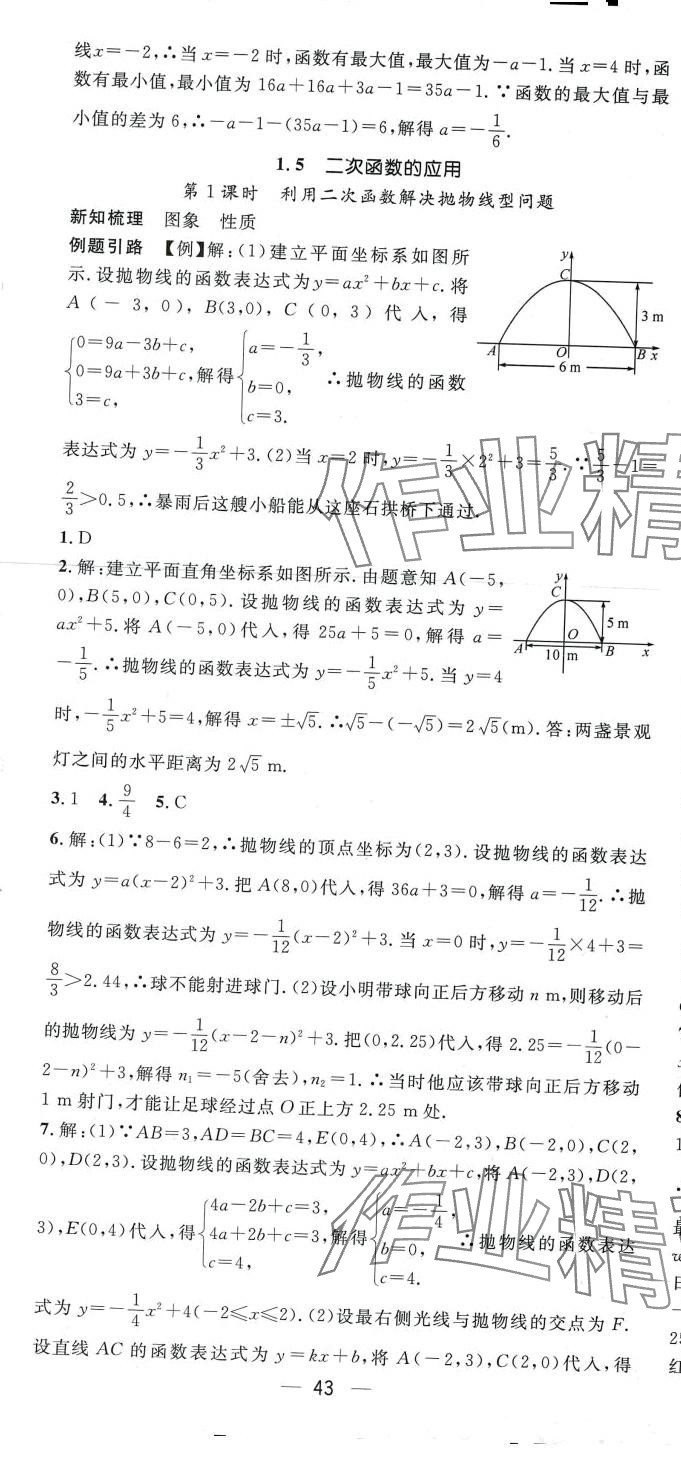 线x=-2,∴当x=-2时,函数有最大值,最大值为-a-1.当x=4时,函
数有最小值,最小值为16a+16a+3a-1=35a-1.∵函数的最大值与最
小值的差为6,∴-a-1-(35a-1)=6,解得a=-1/6.
1.5 二次函数的应用
第1课时 利用二次函数解决抛物线型问题
新知梳理 图象 性质
例题引路 【例】解:(1)建立平面坐标系如图所
示.设抛物线的函数表达式为y=ax²+bx+c.将
A(-3,0),B(3,0),C(0,3)代入,得
{0=9a-3b+c, 0=9a+3b+c, 3=c, 解得{a=-1/3, b=0, c=3. ∴抛物线的函数
y C 3 m A O B x 6 m
表达式为y=-1/3x²+3.(2)当x=2时,y=-1/3×2²+3=5/3.∵5/3-1=
2/3>0.5,∴暴雨后这艘小船能从这座石拱桥下通过.
1.D
2.解:建立平面直角坐标系如图所示.由题意知A(-5,
0),B(5,0),C(0,5).设抛物线的函数表达式为y=
ax²+5.将A(-5,0)代入,得25a+5=0,解得a=
-1/5.∴抛物线的函数表达式为y=-1/5x²+5.当y=4
y C 5 m O A B x 10 m
时,-1/5x²+5=4,解得x=±√5.∴√5-(-√5)=2√5(m).答:两盏景观
灯之间的水平距离为2√5 m.
3.1 4.9/4 5.C
6.解:(1)∵8-6=2,∴抛物线的顶点坐标为(2,3).设抛物线的函数表达
式为y=a(x-2)²+3.把A(8,0)代入,得36a+3=0,解得a=-1/12.∴抛
物线的函数表达式为y=-1/12(x-2)²+3.当x=0时,y=-1/12×4+3=
8/3>2.44,∴球不能射进球门.(2)设小明带球向正后方移动n m,则移动后
的抛物线为y=-1/12(x-2-n)²+3.把(0,2.25)代入,得2.25=-1/12(0-
2-n)²+3,解得n₁=-5(舍去),n₂=1.∴当时他应该带球向正后方移动
1 m射门,才能让足球经过点O正上方2.25 m处.
7.解:(1)∵AB=3,AD=BC=4,E(0,4),∴A(-2,3),B(-2,0),C(2,
0),D(2,3).设抛物线的函数表达式为y=ax²+bx+c,将A(-2,3),D(2,
3),E(0,4)代入,得{4a-2b+c=3, 4a+2b+c=3, c=4, 解得{a=-1/4, b=0, c=4. ∴抛物线的函数表达
式为y=-1/4x²+4(-2≤x≤2).(2)设最右侧光线与抛物线的交点为F.
设直线AC的函数表达式为y=kx+b,将A(-2,3),C(2,0)代入,得
— 43 —
作业精
作业精